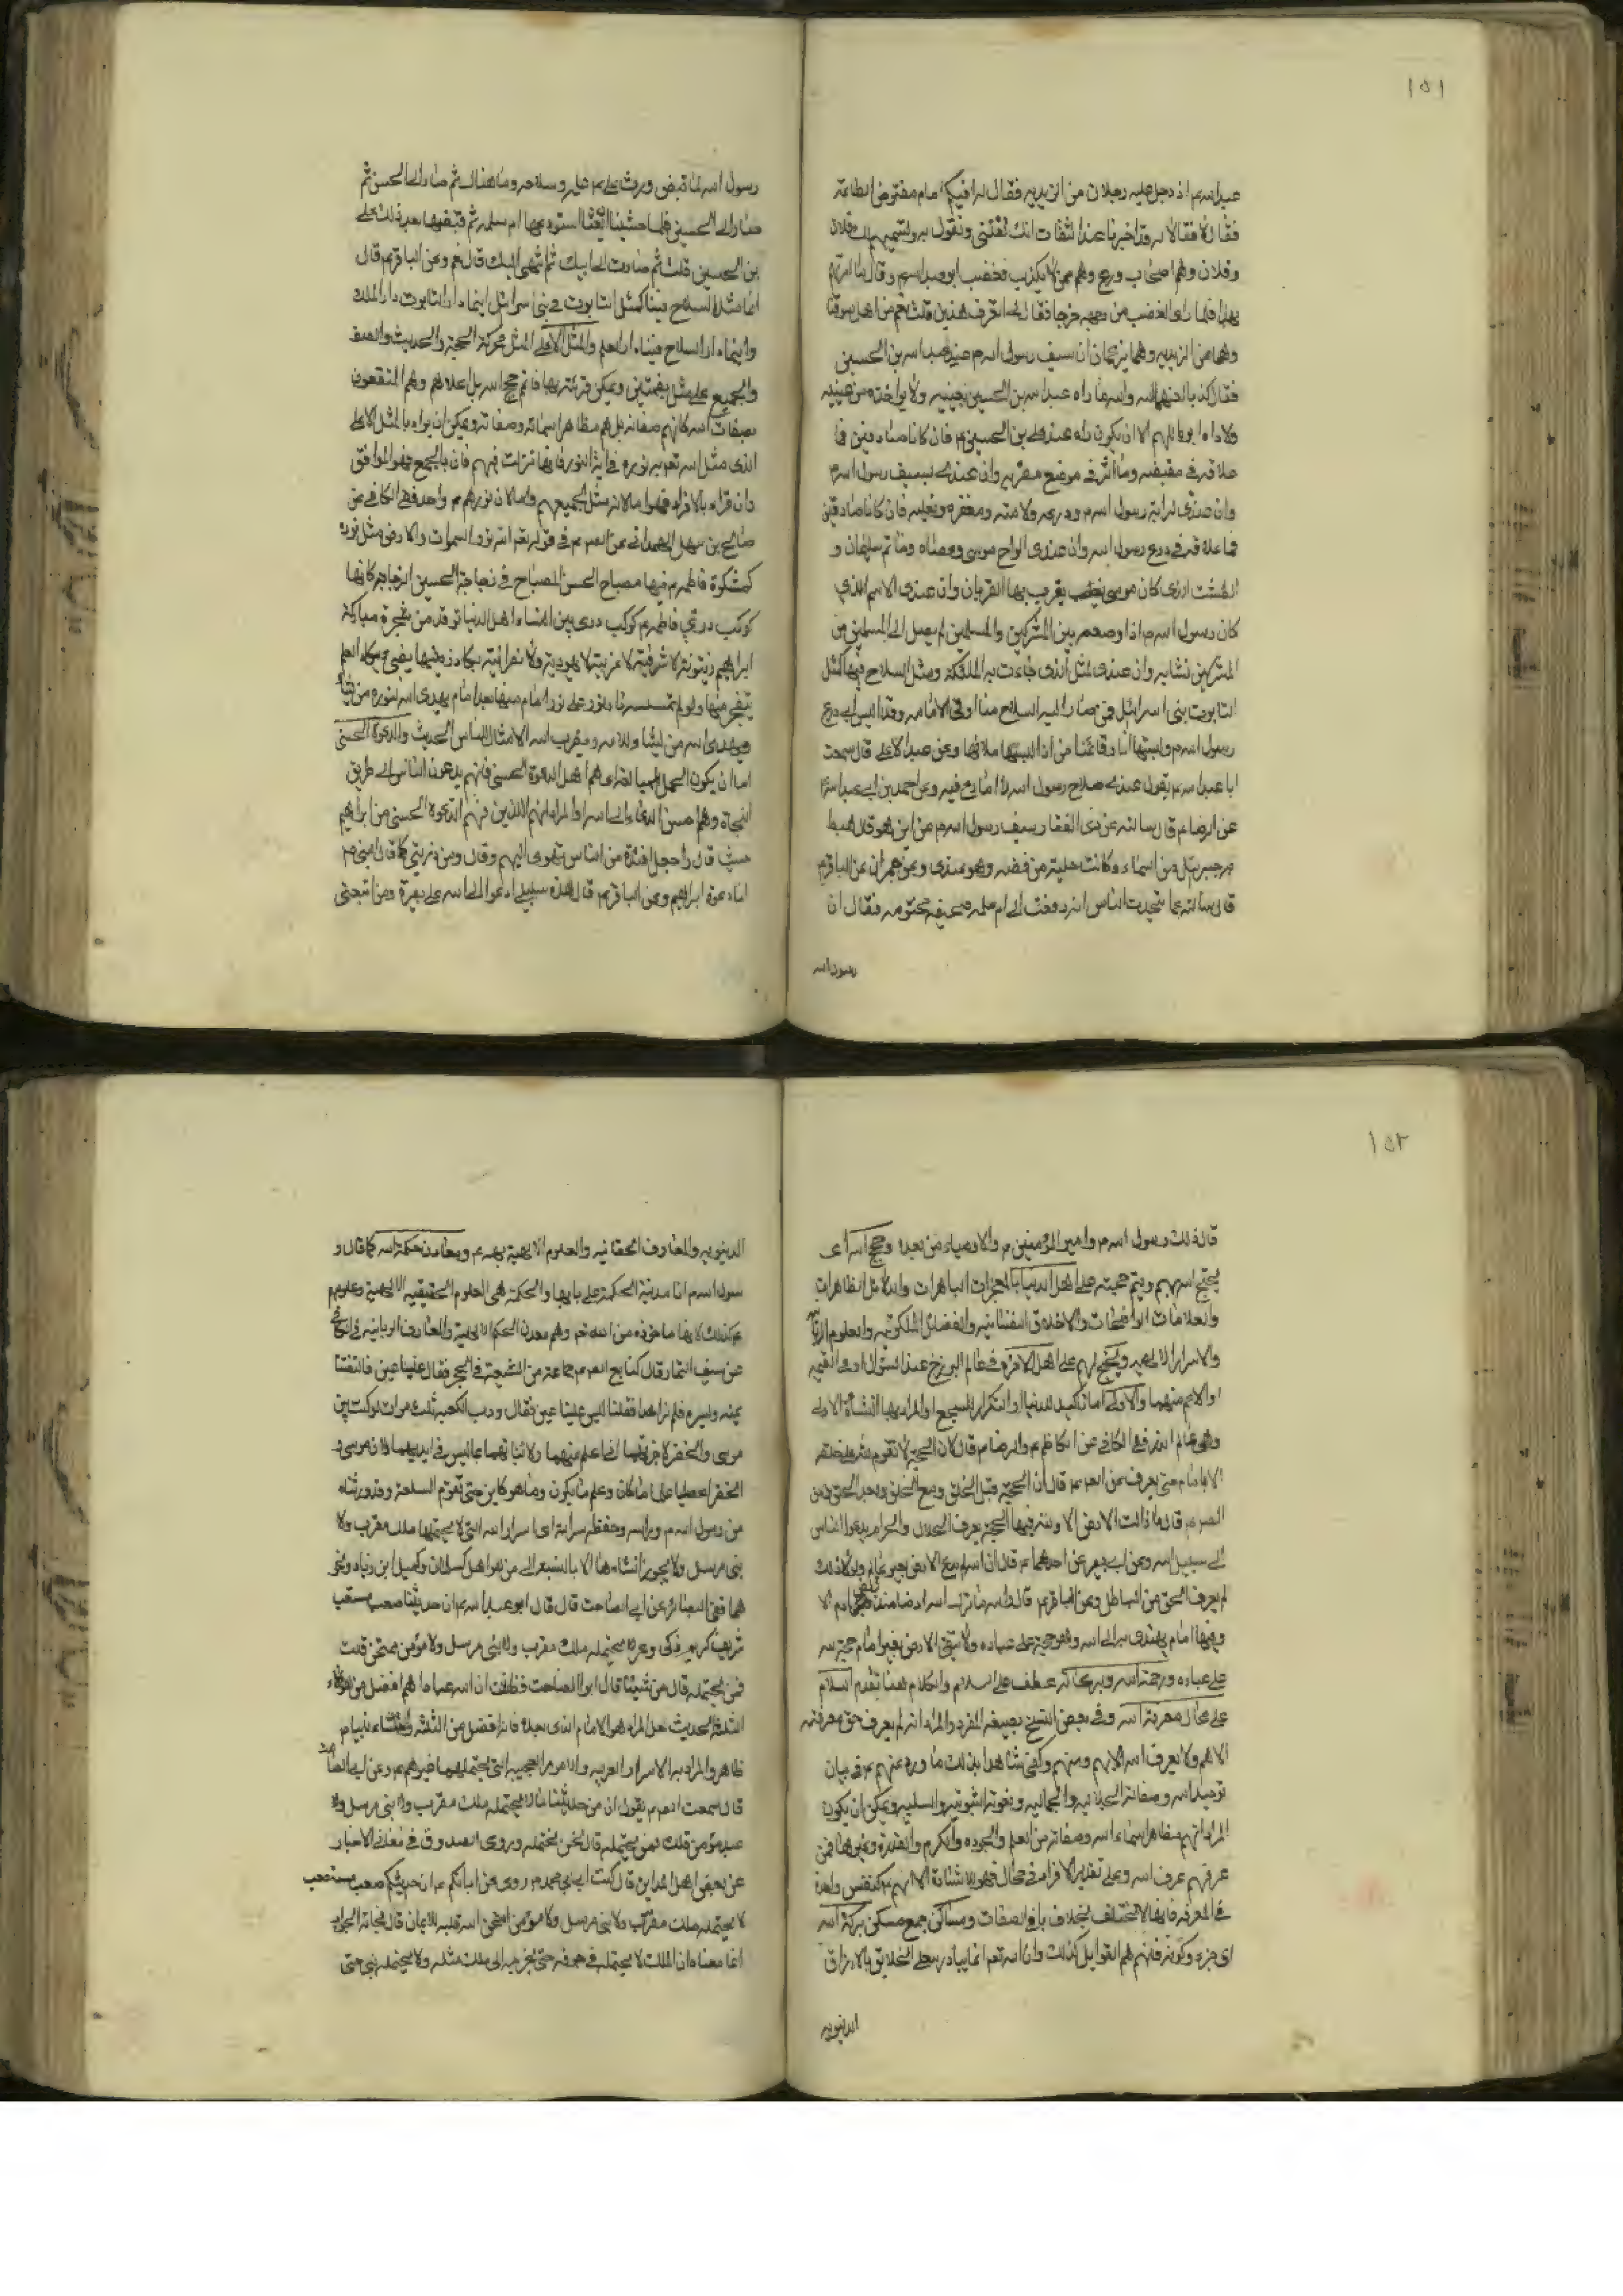 ١٥١
عبد الله م اذ دخل عليه رجلان من الزيديه فقال له افيكم امام مفترض الطاعة
فقال لا فقالا له قد اخبرنا عنك الثقات انك تفتي وتقول به ونسميهم لك فلان
وفلان وهم اصحاب ورع وهم ممن لا يكذب فغضب ابو عبد الله م وقال ما امرتهم
بهذا فلما راى الغضب من وجهه خرجا فقال لي اتعرف هذين قلت نعم من اهل سوقنا
وهما من الزيديه وهما يزعمان ان سيف رسول الله م عند عبد الله بن الحسين
فقال كذبا لعنهما الله والله ما راه عبد الله بن الحسين بعينيه ولا بواحدة من عينيه
ولا راه ابوه اللهم الا ان يكون راه عند علي بن الحسين م فان كانا صادقين فما
علامة في مقبضه وما اثر في موضع مضربه وان عندي لسيف رسول الله م
وان عندي لراية رسول الله م ودرعه ولامته ومغفره فان كانا صادقين
فما علامة في درع رسول الله وان عندي الواح موسى وعصاه وخاتم سليمان و
الطشت الذي كان موسى يقرب بها القربان وان عندي الاسم الذي
كان رسول الله م اذا وضعه بين المشركين والمسلمين لم يصل الى المسلمين من
المشركين نشابه وان عندي لمثل الذي جاءت به الملئكة ومثل السلاح فينا كمثل
التابوت بني اسرائيل فمن صار اليه السلاح منا اوتي الامامه وقد لبس ابي درع
رسول الله م ولبستها انا وقائمنا من اذا لبسها ملاها وعن عبد الاعلى قال سمعت
ابا عبد الله م يقول عندي سلاح رسول الله لا انازع فيه وعن احمد بن ابي عبد الله
عن الرضا م قال سالته عن ذي الفقار سيف رسول الله م من اين هو قال هبط
به جبرئيل من السماء وكانت حليته من فضه وهو عندي وعن حمران عن الباقر م
قال سالته عما يتحدث الناس انه دفعت الى ام سلمه صحيفه مختومه فقال ان
رسول الله
رسول الله لما قبض ورث علي م علمه وسلاحه وما هناك ثم صار الى الحسن ثم
صار الى الحسين فلما خشينا ان نغشا استودعها ام سلمه ثم قبضها بعد ذلك علي
بن الحسين قلت ثم صارت الى ابيك ثم انتهى اليك قال نعم وعن الباقر م قال
انما مثل السلاح فينا كمثل التابوت في بني اسرائيل اينما دار التابوت دار الملك
واينما دار السلاح فينا دار العلم والمثل الاعلى المثل محركة الحجة والحديث والصفة
والجميع على مثل بضمتين ويمكن قرائته بها فانهم حجج الله بل اعلاهم وهم المتصفون
بصفات الله كانهم صفاته بل هم مظاهر اسمائه وصفاته ويمكن ان يراد بالمثل الاعلى
الذي مثل الله تعم به نوره في اية النور فانها نزلت فيهم فان بالجمع فهو الموافق
وان قراء بالافراد فهو اما لانه مثل لجميعهم واما لان نورهم م واحد ففي الكافي عن
صالح بن سهل الهمداني عن الص م في قوله تعم الله نور السموات والارض مثل نوره
كمشكوة فاطمه م فيها مصباح الحسن المصباح في زجاجة الحسين الزجاجة كانها
كوكب دري فاطمه م كوكب دري بين نساء اهل الدنيا توقد من شجرة مباركة
ابراهيم زيتونة لا شرقية ولا غربية لا يهودية ولا نصرانية يكاد زيتها يضيء يكاد العلم
يتفجر منها ولو لم تمسسه نار نور على نور امام منها بعد امام يهدي الله لنوره من يشاء
ويضرب الله الامثال للناس الحديث والدعوة الحسنى
اما ان يكون الحمل للمبالغة اي هم اهل الدعوة الحسنى فانهم يدعون الناس الى طريق
النجاة وهم احسن الدعاة الى الله او المراد انهم الذين فيهم الدعوة الحسنى من ابراهيم
حيث قال واجعل افئدة من الناس تهوي اليهم وقال ومن ذريتي كما قال النبي م
انا دعوة ابراهيم وعن الباقر م قال هذه سبيلي ادعو الى الله على بصيرة ومن اتبعني
١٥٢
قال ذلك رسول الله م وامير المؤمنين م والاوصياء من بعده وحجج الله اي
يحتج الله بهم ويتم حجته على اهل الدنيا بالمعجزات الباهرات والدلائل الظاهرات
والعلامات الواضحات والاخلاق النفسانيه والفضائل الملكوتيه والعلوم الربانيه
والاسرار الالهيه ويحتج بهم على اهل الاخرة في عالم البرزخ عند السؤال او في القيمه
او الاعم منهما والاولى اما تاكيد للدنيا او التكرار للسجع او المراد بها النشاة الاولى
وهي عالم الذر ففي الكافي عن الكاظم م والرضا م قال ان الحجة لا تقوم لله على خلقه
الا بامام حتى يعرف وعن الص م قال ان الحجة قبل الخلق ومع الخلق وبعد الخلق وعن
الص م قال ما زالت الارض الا ولله فيها الحجة يعرف الحلال والحرام ويدعو الناس
الى سبيل الله وعن ابي بصير عن احدهما م قال ان الله لم يدع الارض بغير عالم ولولا ذلك
لم يعرف الحق من الباطل وعن الباقر م قال والله ما ترك الله ارضا منذ قبض ادم الا
وفيها امام يهتدى به الى الله وهو حجته على عباده ولا تبقى الارض بغير امام حجة لله
على عباده ورحمة الله وبركاته عطف على السلام والكلام هنا تقدم السلام
على محال معرفة الله وفي بعض النسخ بصيغة المفرد والمراد انه لم يعرف حق معرفته
الا هم ولا يعرف الله الا بهم ومنهم وكفى شاهدا بذلك ما ورد عنهم م في بيان
توحيد الله وصفاته الجلاليه والجماليه ونعوته الثبوتيه والسلبيه ويمكن ان يكون
المراد انهم مظاهر اسماء الله وصفاته من العلم والجود والكرم والقدرة وغيرها فمن
عرفهم عرف الله وعلى تقدير الافراد في محال فهو للاشارة الا انهم كنفس واحدة
في المعرفه فانها لا تختلف بخلاف باقي الصفات ومساكن جمع مسكن بركة الله
اي خيره وكونه فانهم هم القوابل كذلك وان الله تعم انما يبارك على الخلائق بالارزاق
الدنيويه
الدنيويه والمعارف الحقانيه والعلوم الالهيه بهم م ومعادن حكمة الله كما قال ر
سول الله م انا مدينة الحكمة وعلي بابها والحكمة هي العلوم الحقيقيه الالهيه وعلوم
م كذلك لانها ماخوذه من الله تعم وهم معدن الحكم الالهيه والمعارف الربانيه في الكافي
عن سيف التمار قال كنا مع الص م جماعة من الشيعة في الحجر فقال علينا عين فالتفتنا
يمنه ويسره فلم نر احدا فقلنا ليس علينا عين فقال ورب الكعبه ثلث مرات لو كنت بين
موسى والخضر لاخبرتهما اني اعلم منهما ولانباتهما بما ليس في ايديهما لان موسى و
الخضر اعطيا علم ما كان وعلم ما يكون وما هو كاين حتى تقوم الساعة وقد ورثناه
من رسول الله م وراثة وحفظة سر الله اي اسرار الله التي لا يحتملها ملك مقرب ولا
نبي مرسل ولا يجوز افشاءها الا بالنسبة الى من هو اهل كسلمان وكميل ابن زياد ونحو
هما ففي البصائر عن ابي الصامت قال قال ابو عبد الله م ان حديثنا صعب مستصعب
شريف كريم ذكي وعر لا يحتمله ملك مقرب ولا نبي مرسل ولا مؤمن ممتحن قلت
فمن يحتمله قال من شيئنا قال ابو الصامت فظننت ان لله عبادا هم افضل من هؤلاء
الثلثة الحديث لعل المراد هو الامام الذي بعده فانه افضل من الثلثه واستثناء نبينا م
ظاهر والمراد به الاسرار والامور العجيبه التي لا يحتملها غيرهم م وعن ابي الصامت
قال سمعت الص م يقول ان من حديثنا ما لا يحتمله ملك مقرب ولا نبي مرسل ولا
عبد مؤمن قلت فمن يحتمله قال نحن نحتمله وروى الصدوق في معاني الاخبار
عن بعض اهل المداين قال كتبت الى ابي محمد م روي عن ابائكم م ان حديثكم صعب مستصعب
لا يحتمله ملك مقرب ولا نبي مرسل ولا مؤمن امتحن الله قلبه للايمان قال فجائه الجواب
انما معناه ان الملك لا يحتمله في جوفه حتى يخرجه الى ملك مثله ولا يحتمله نبي حتى